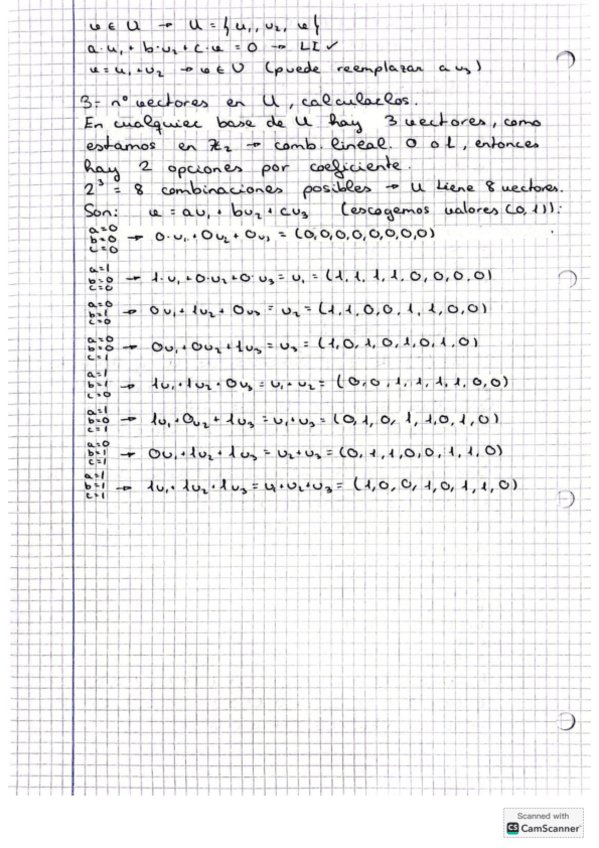 u ∈ U → U = {u₁, u₂, u}
a·u₁ + b·u₂ + c·u = 0 → LI ✓
u = u₁ + u₂ → u ∈ U (puede reemplazar a u₃)
3- nº vectores en U, calcularlos.
En cualquier base de U hay 3 vectores, como
estamos en ℤ₂ → comb. lineal. 0 o 1, entonces
hay 2 opciones por coeficiente.
2³ = 8 combinaciones posibles → U tiene 8 vectores.
Son: u = au₁ + bu₂ + cu₃ (escogemos valores (0,1)):
a=0 b=0 c=0 → 0·u₁ + 0u₂ + 0u₃ = (0,0,0,0,0,0,0,0)
a=1 b=0 c=0 → 1·u₁ + 0·u₂ + 0·u₃ = u₁ = (1,1,1,1,0,0,0,0)
a=0 b=1 c=0 → 0u₁ + 1u₂ + 0u₃ = u₂ = (1,1,0,0,1,1,0,0)
a=0 b=0 c=1 → 0u₁ + 0u₂ + 1u₃ = u₃ = (1,0,1,0,1,0,1,0)
a=1 b=1 c=0 → 1u₁ + 1u₂ + 0u₃ = u₁ + u₂ = (0,0,1,1,1,1,0,0)
a=1 b=0 c=1 → 1u₁ + 0u₂ + 1u₃ = u₁ + u₃ = (0,1,0,1,1,0,1,0)
a=0 b=1 c=1 → 0u₁ + 1u₂ + 1u₃ = u₂ + u₃ = (0,1,1,0,0,1,1,0)
a=1 b=1 c=1 → 1u₁ + 1u₂ + 1u₃ = u₁ + u₂ + u₃ = (1,0,0,1,0,1,1,0)
Scanned with
CS CamScanner